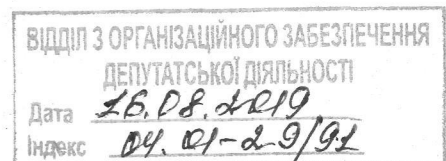 ВІДДІЛ З ОРГАНІЗАЦІЙНОГО ЗАБЕЗПЕЧЕННЯ
ДЕПУТАТСЬКОЇ ДІЯЛЬНОСТІ
Дата 16.08.2019
Індекс 04.01-29/91